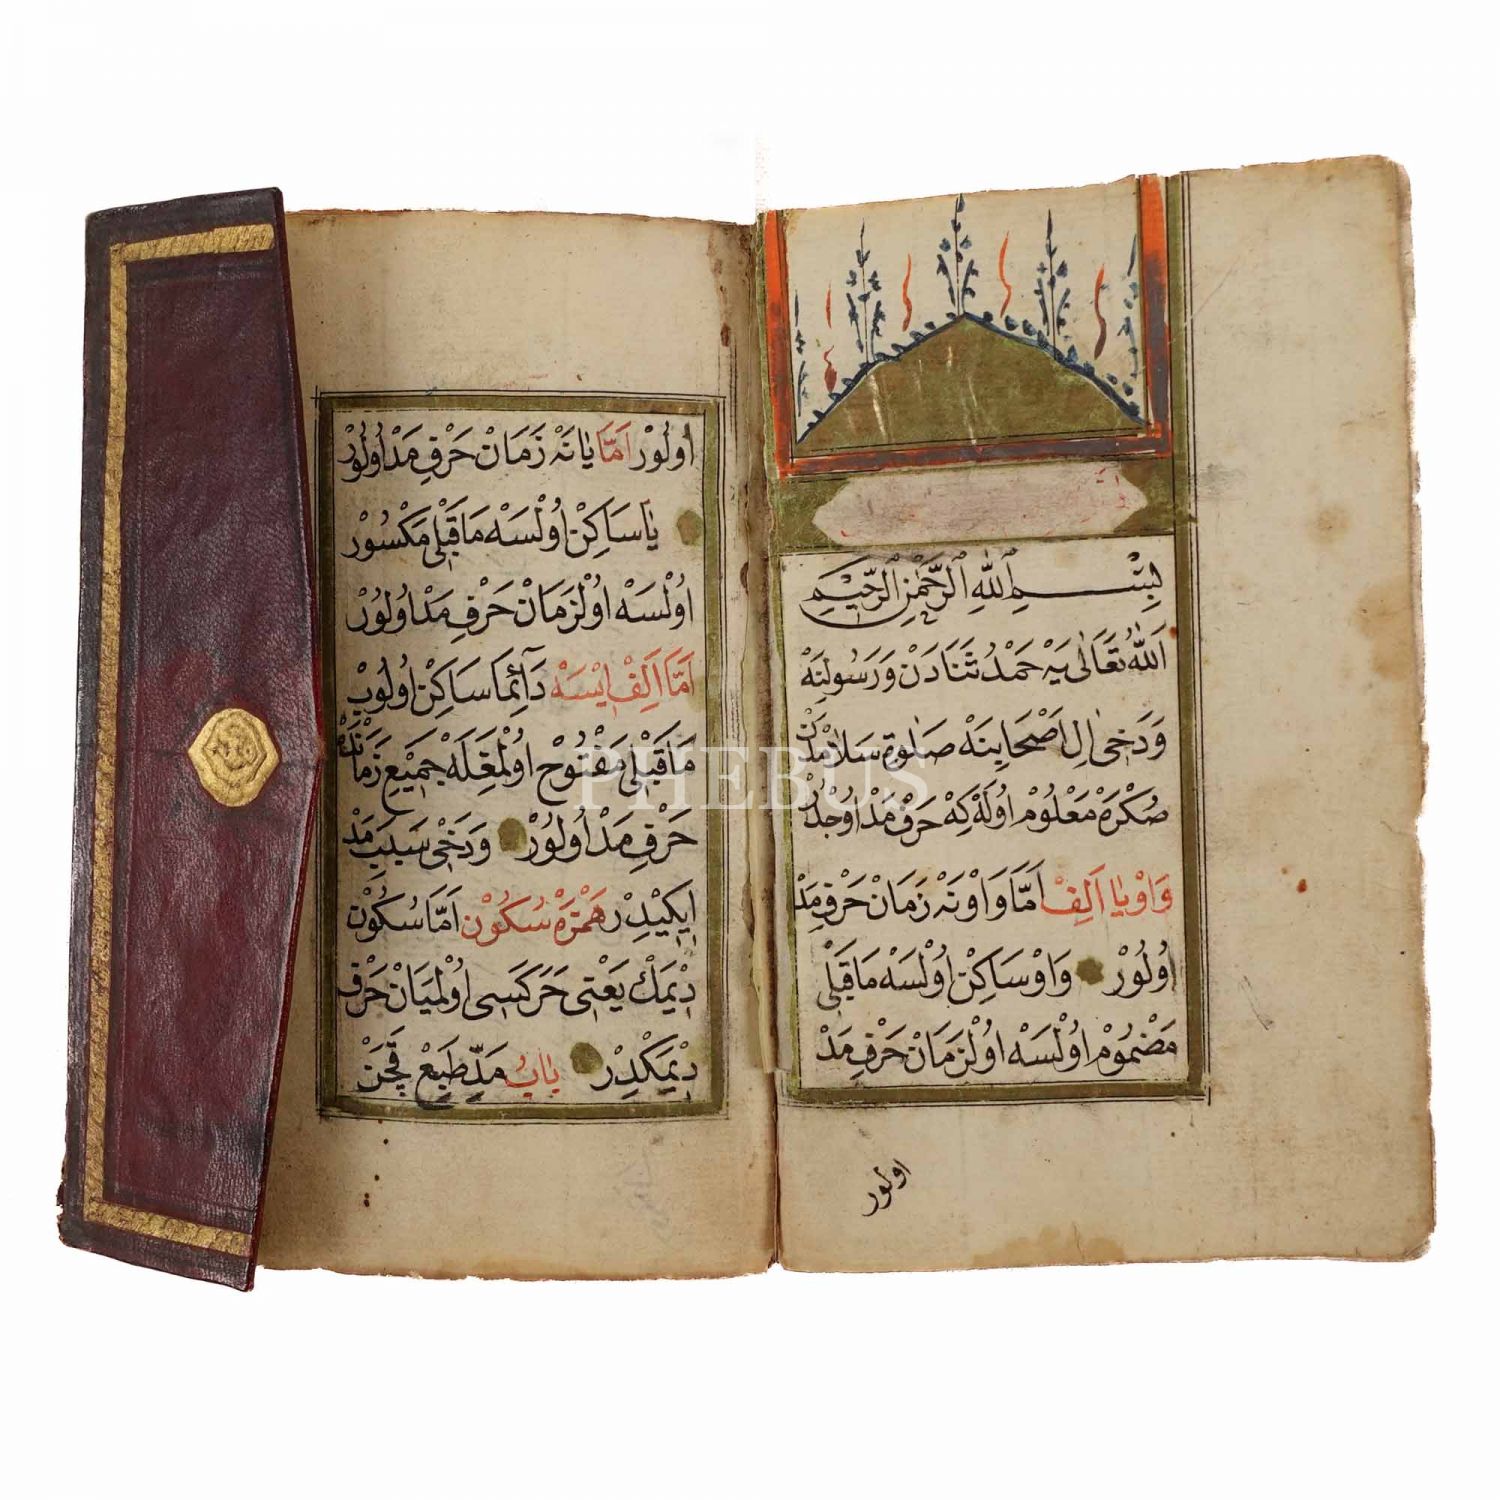 بِسْمِ اللّٰهِ الرَّحْمٰنِ الرَّحِيمِ
اَللّٰهُ تَعَالٰى يَهْ حَمْدُ ثَنَادَنْ وَرَسُولِنَهْ
وَدَخِى اٰلِ اَصْحَابِنَهْ صَلٰوةِ سَلَامْدَنْ
صُكْرَهْ مَعْلُومْ اُولَهْ كِهْ حَرْفِ مَدْ اُوجْدُرْ
وَاوْ يَا اَلِفْ اَمَّا وَاوْ نَهْ زَمَانْ حَرْفِ مَدْ
اُولُورْ وَاوْ سَاكِنْ اُولْسَهْ مَاقَبْلِى
مَضْمُومْ اُولْسَهْ اُولْزَمَانْ حَرْفِ مَدْ
اولور
اُولُورْ اَمَّا يَا نَهْ زَمَانْ حَرْفِ مَدْ اُولُورْ
يَا سَاكِنْ اُولْسَهْ مَاقَبْلِى مَكْسُورْ
اُولْسَهْ اُولْزَمَانْ حَرْفِ مَدْ اُولُورْ
اَمَّا اَلِفْ اِيسَهْ دَآئِمَا سَاكِنْ اُولُوبْ
مَاقَبْلِى مَفْتُوحْ اُولْمَغِلَهْ جَمِيعِ زَمَانْدَهْ
حَرْفِ مَدْ اُولُورْ وَدَخِى سَبَبِ مَدْ
اِيكِيدِرْ هَمْزَهْ سُكُونْ اَمَّا سُكُونْ
دِيمَكْ يَعْنِى حَرَكَسِى اُولْمَيَانْ حَرْفْ
دِيمَكْدِرْ بَابُ مَدِّ طَبِيعِ قَچَنْ
PHEBUS